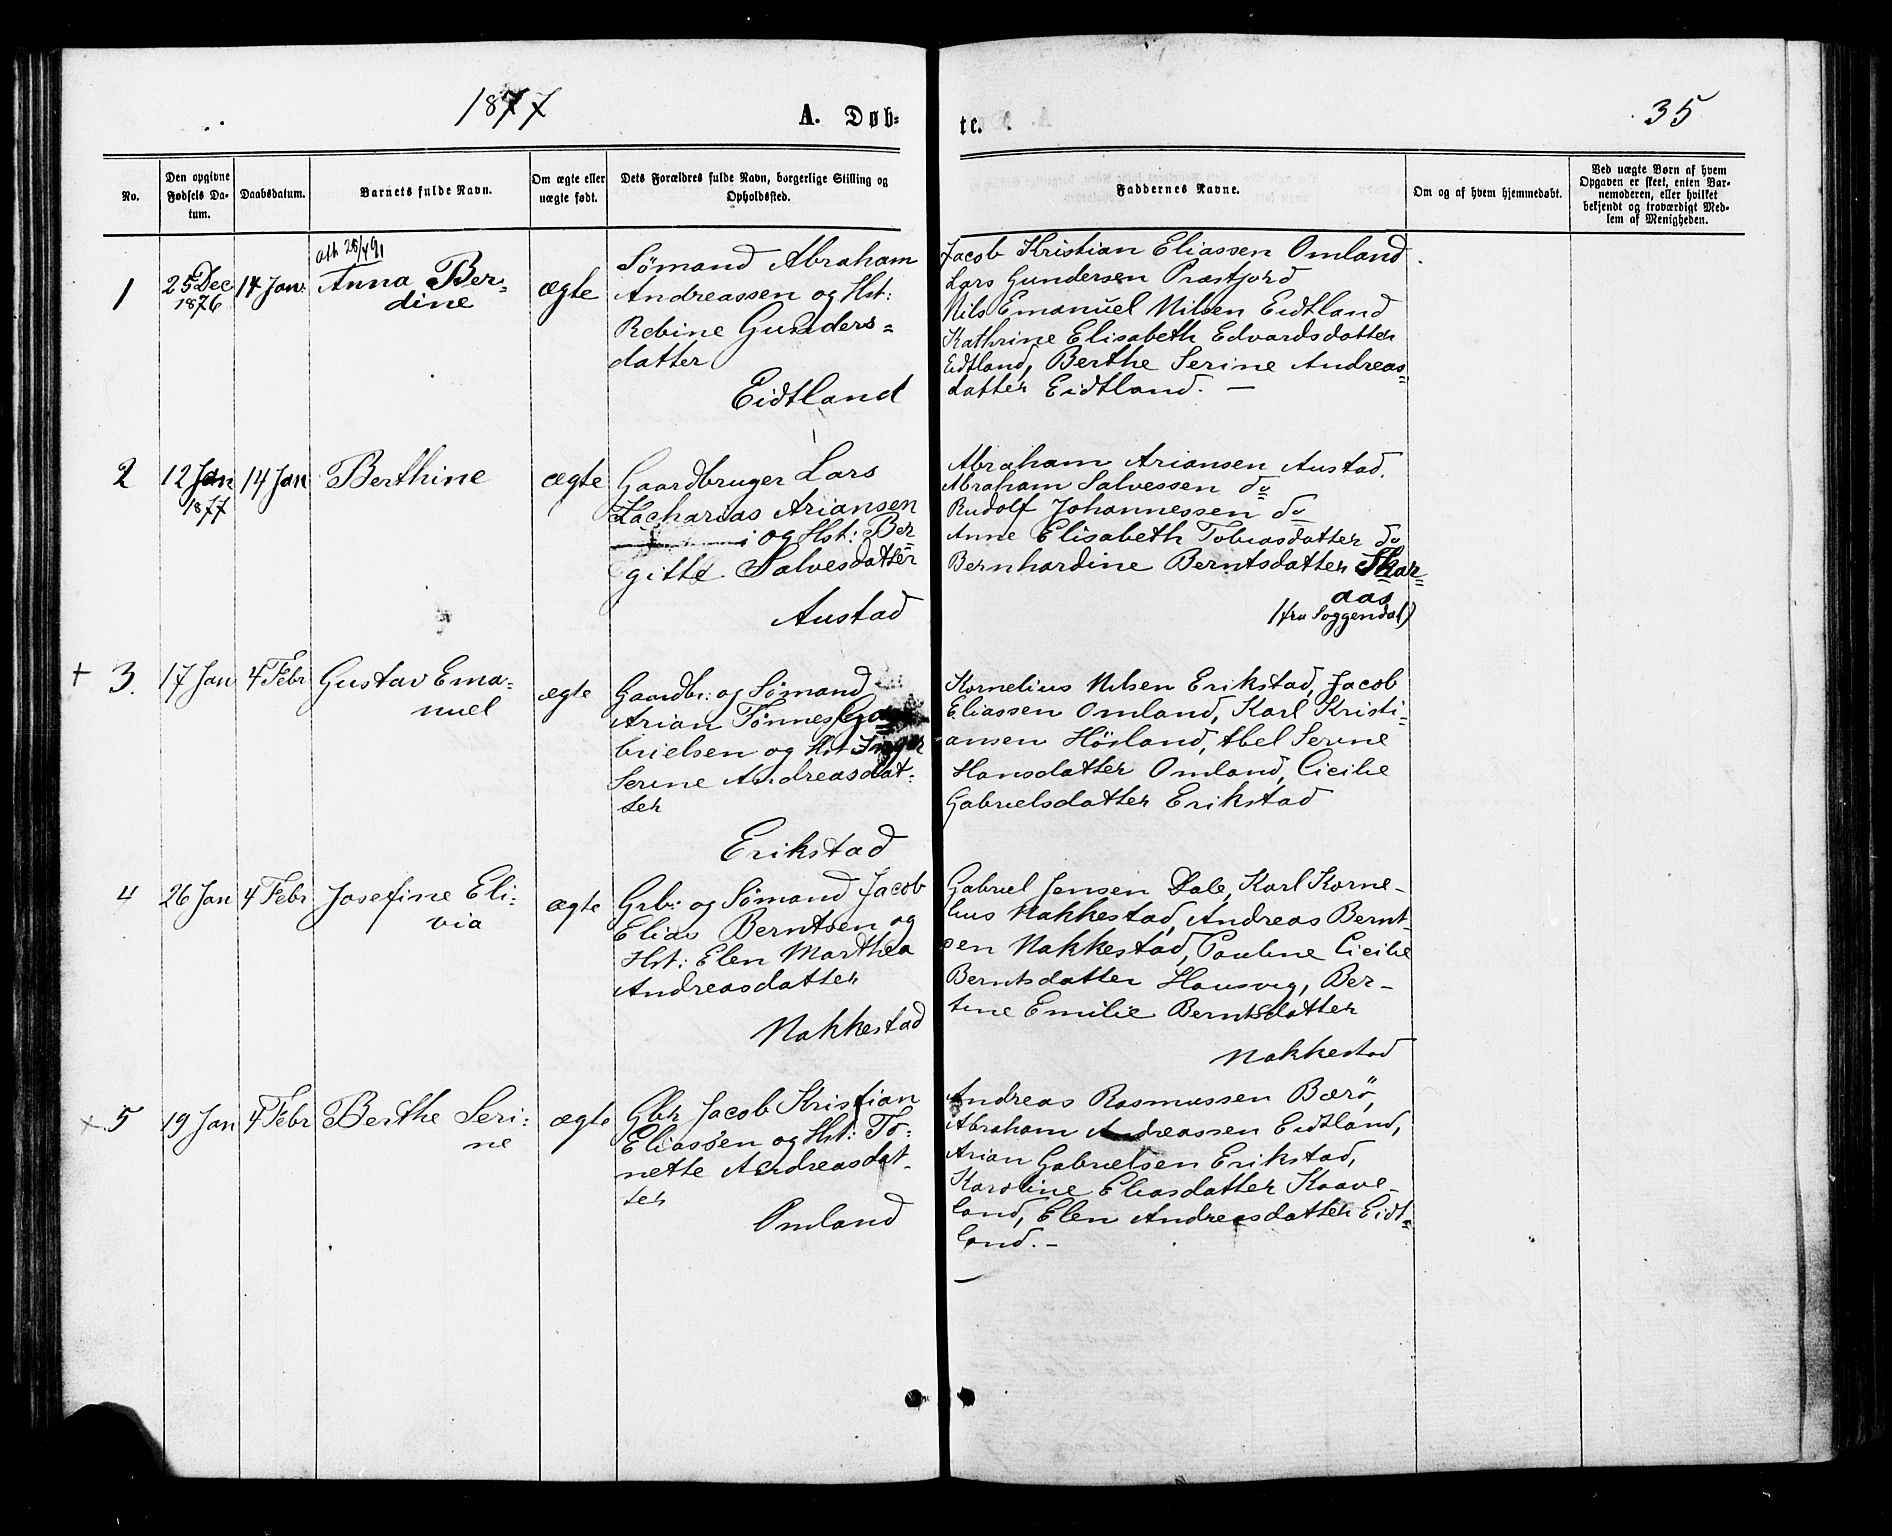 1877
A. Døb-
te.
35
No.
Den opgivne
Fødsels Da-
tum.
Daabsdatum.
Barnets fulde Navn.
Om ægte eller
uægte født.
Dets Forældres fulde Navn, borgerlige Stilling og
Opholdssted.
Faddernes Navne.
Om og af hvem hjemmedøbt.
Ved uægte Børn af hvem
Opgaven er skeet, enten Bar-
nemoderen, eller hvilket
bekjendt og troværdigt Med-
lem af Menigheden.
1
25 Dec
1876
14 Jan:
att 25/4 91
Anna Ber-
dine
ægte
Sømand Abraham
Andreassen og Hst:
Rebine Gunders-
datter
Eidtland
Jacob Kristian Eliassen Omland
Lars Gundersen Præstjord
Nils Emanuel Nilsen Eidtland
Kathrine Elisabeth Edvardsdatter
Eidtland, Berthe Serine Andreas-
datter Eidtland. –
2
12 Jan
1877
14 Jan
Berthine
ægte
Gaardbruger Lars
Zacharias Ariansen
og Hst: Ber-
gitte Salvesdatter
Austad
Abraham Ariansen Austad.
Abraham Salvessen do
Rudolf Johannessen do
Anne Elisabeth Tobiasdatter do
Bernhardine Berntsdatter Skar-
aas
(fra Soggendal)
+ 3.
17 Jan
4 Febr
Gustav Ema-
nuel
ægte
Gaardbr: og Sømand
Arian Tønnes Ga-
brielsen og Hst Inger
Serine Andreasdat-
ter
Erikstad
Kornelius Nilsen Erikstad, Jacob
Eliassen Omland, Karl Kristi-
ansen Høsland, Abel Serine
Hansdatter Omland, Cicilie
Gabrielsdatter Erikstad
4
26 Jan
4 Febr
Josefine Eli-
via
ægte
Grb: og Sømand Jacob
Elias Berntsen og
Hst: Elen Marthea
Andreasdatter
Nakkestad
Gabriel Jensen Dale, Karl Korne-
lius Nakkestad, Andreas Bernt-
sen Nakkestad, Pauline Cicilie
Berntsdatter Hausvig, Ber-
tine Emilie Berntsdatter
Nakkestad
x 5
19 Jan
4 Febr
Berthe Seri-
ne
ægte
Gbr Jacob Kristian
Eliassen og Hst: To-
nette Andreasdat-
ter
Omland
Andreas Rasmussen Bærø,
Abraham Andreassen Eidtland,
Arian Gabrielsen Erikstad,
Karoline Eliasdatter Kaave-
land, Elen Andreasdatter Eidt-
land. –